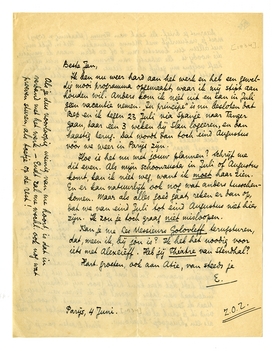 Beste Jan,
Ik ben nu weer hard aan het werk en heb een gewel-
dig mooi programma opgemaakt, waar ik mij stipt aan
houden wil. Anders kom ik niet uit en kan in Juli
geen vacantie nemen. In principe is nu besloten dat
Bep en ik tegen 23 Juli via Spanje naar Tanger
gaan, daar een 3 weken bij Stan logeeren, en dan
haastig terug. Dat wordt dan toch eind Augustus
vóór we weer in Parijs zijn.
Hoe is het nu met jouw plannen? Schrijf me
dit even. Als mijn schoonmoeder in Juli of Augustus
komt kan ik niet weg, want ik moet haar zien.
En er kan natuurlijk ook nog wat anders tusschen-
komen. Maar als alles goed gaat, reken er dan op
dat we van eind Juli tot eind Augustus niet hier
zijn. Ik zou je toch graag niet misloopen.
Kan je me Les Messieurs Golovleff terugsturen,
dat, meen ik, bij jou is? Ik heb het noodig voor
iets met Alexeieff. Heb jij Théâtre van Stendhal?
Hart. groeten, ook aan Atie, van steeds je
E.
Parijs, 4 Juni.
Z.O.Z.
Als je dus voorloopig weinig van me hoort, is dat in
verband met het werk. – Enfin, zal me wel ook nog wat